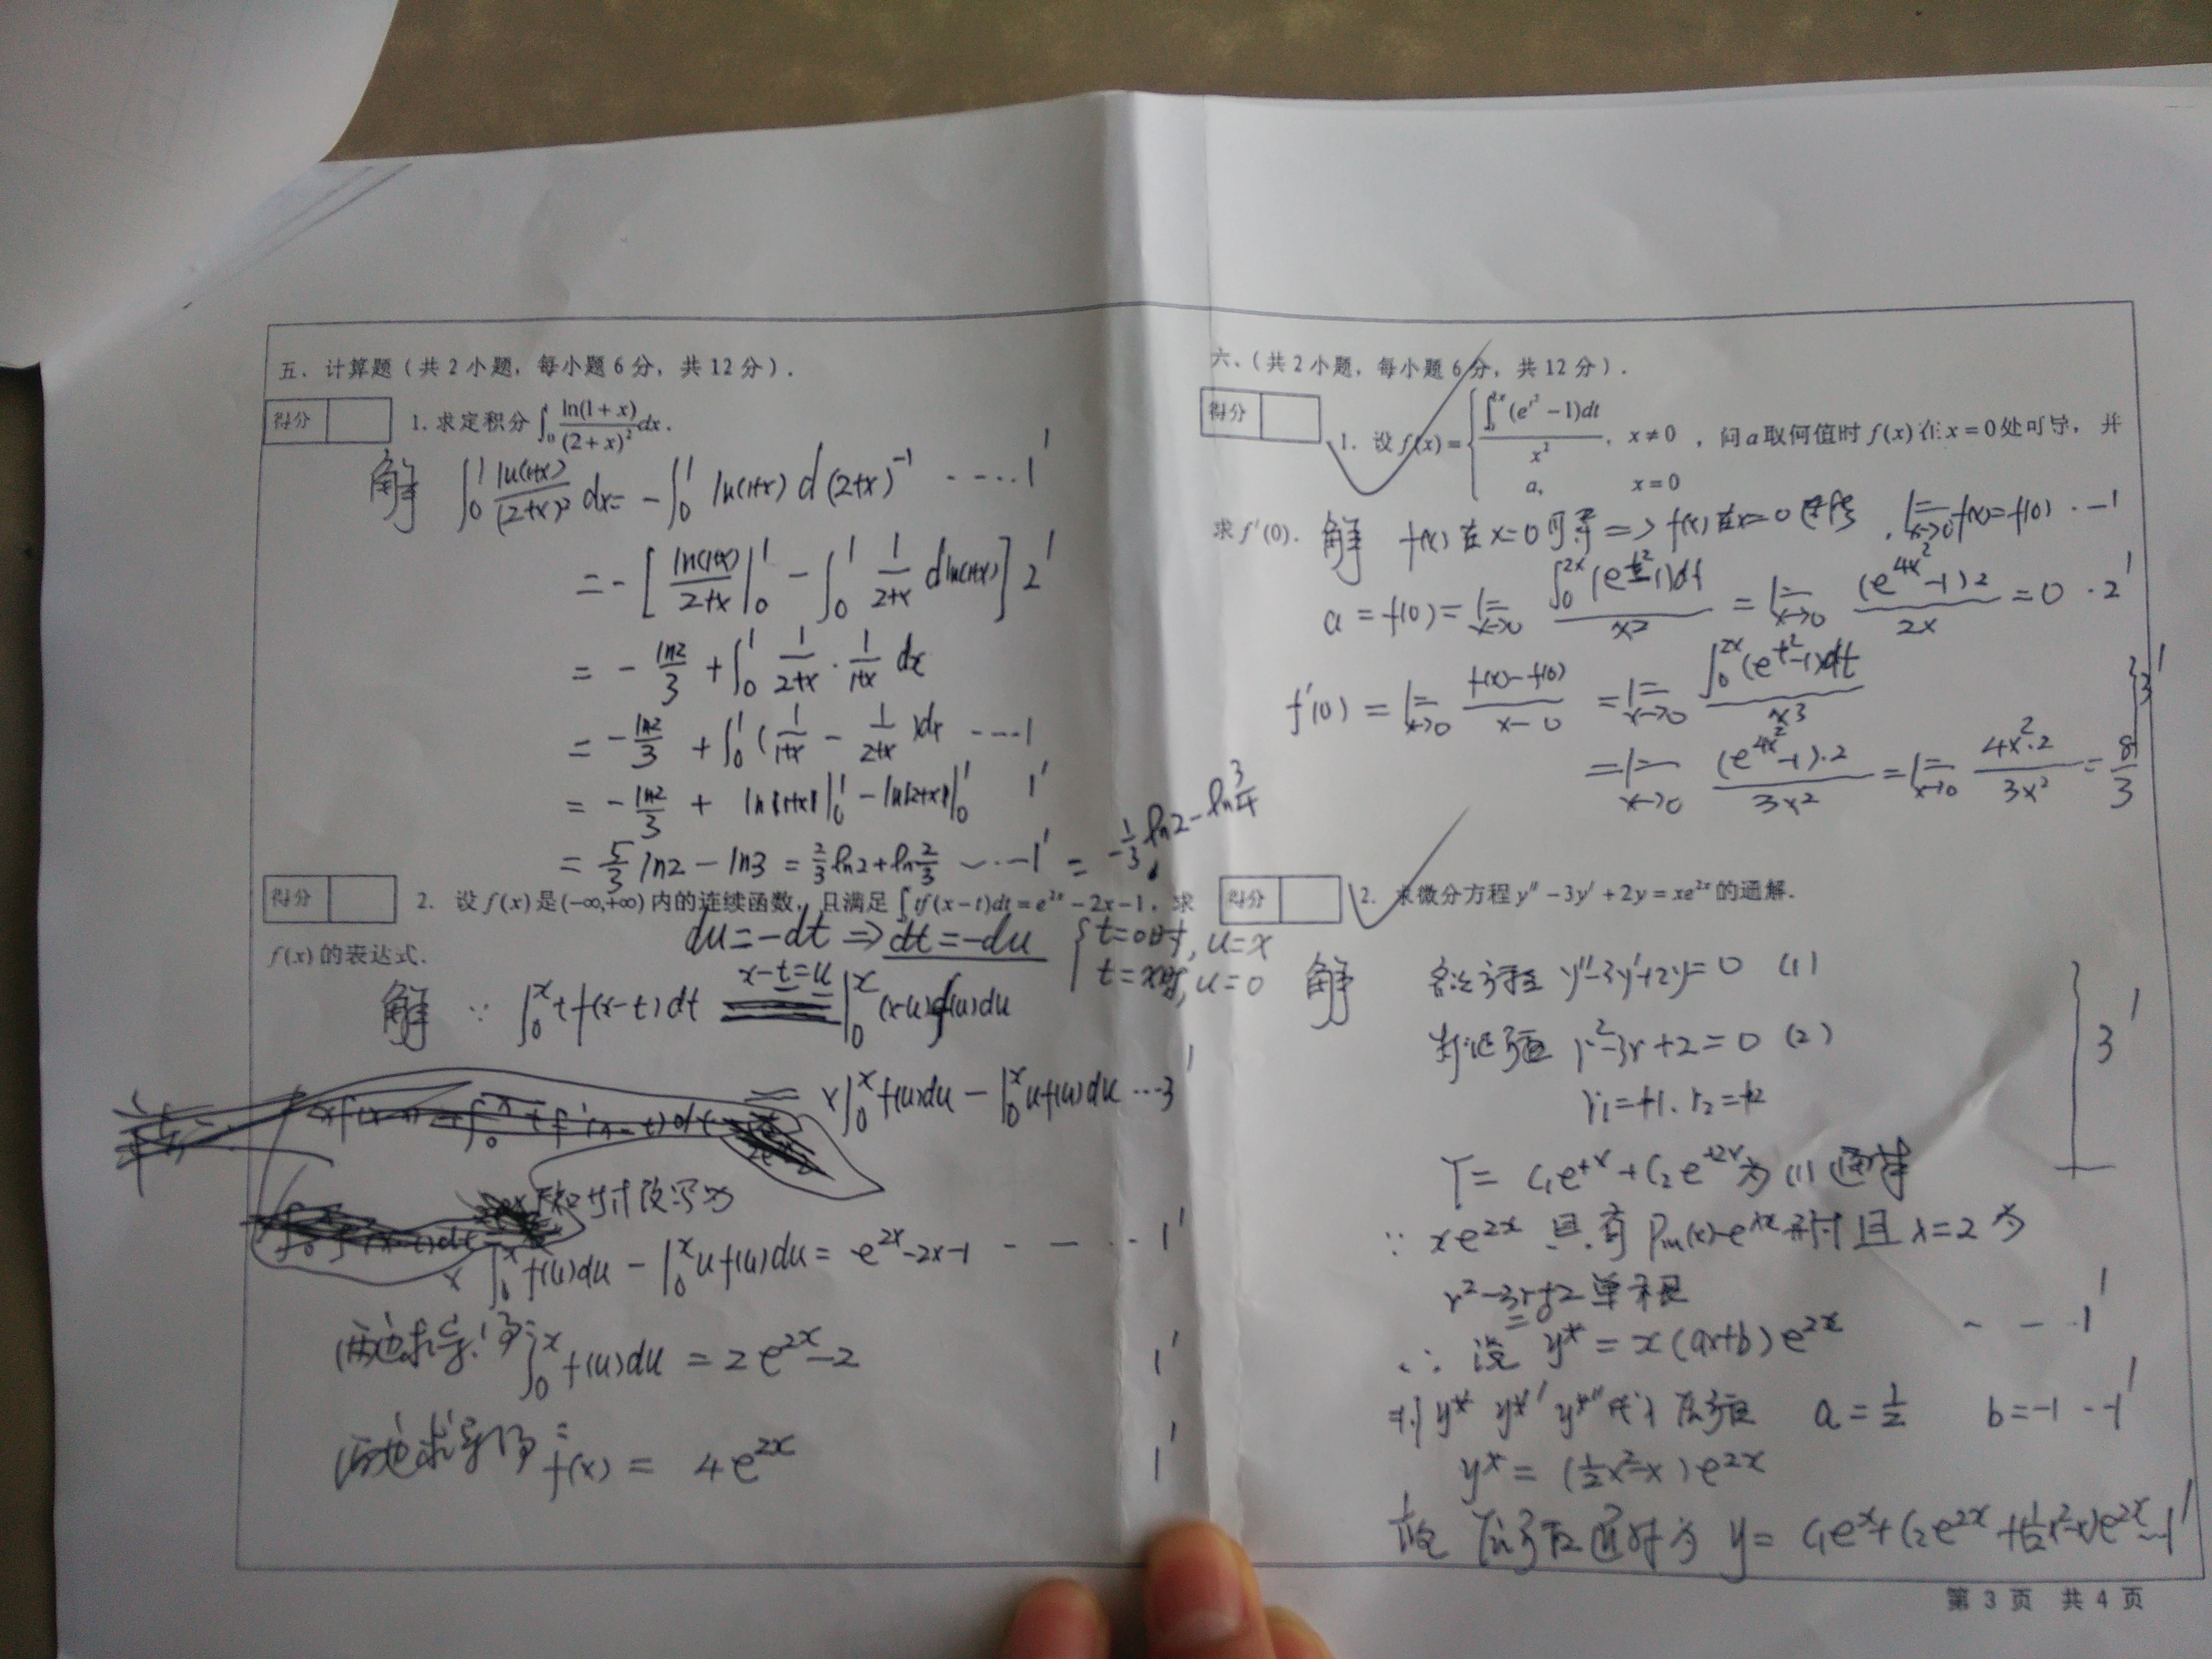 五、计算题(共2小题,每小题6分,共12分).
得分
1.求定积分∫₀¹ ln(1+x)/(2+x)² dx.
解 ∫₀¹ ln(1+x)/(2+x)² dx = -∫₀¹ ln(1+x) d(2+x)⁻¹ ----- 1'
= -[ln(1+x)/(2+x)|₀¹ - ∫₀¹ 1/(2+x) dln(1+x)] 2'
= -ln2/3 + ∫₀¹ 1/(2+x)·1/(1+x) dx
= -ln2/3 + ∫₀¹ (1/(1+x) - 1/(2+x))dx ---- 1
= -ln2/3 + ln|1+x||₀¹ - ln|2+x||₀¹ 1'
= 5/3 ln2 - ln3 = 2/3 ln2 + ln 2/3 ---- 1' = -1/3 ln2 - ln 3/4
得分
2. 设f(x)是(-∞,+∞)内的连续函数,且满足∫₀ˣ tf(x-t)dt = e²ˣ - 2x - 1,求
du = -dt ⇒ dt = -du { t=0时, u=x
t=x时, u=0
f(x)的表达式.
解 ∵ ∫₀ˣ t f(x-t)dt x-t=u ∫₀ˣ (x-u)f(u)du
= x∫₀ˣ f(u)du - ∫₀ˣ uf(u)du ---3'
改写为
x∫₀ˣ f(u)du - ∫₀ˣ uf(u)du = e²ˣ-2x-1 - - -- 1'
两边求导得: ∫₀ˣ f(u)du = 2e²ˣ-2 1'
两边求导得: f(x) = 4e²ˣ 1'
六、(共2小题,每小题6分,共12分).
得分
1. 设f(x) = { ∫₀²ˣ(e^(t²)-1)dt / x², x≠0
a, x=0
,问a取何值时f(x)在x=0处可导,并
求f'(0).
解 f(x)在x=0可导 => f(x)在x=0连续, lim x→0 f(x)=f(0) --1
a = f(0) = lim x→0 ∫₀²ˣ(e^(t²)-1)dt / x² = lim x→0 (e^(4x²)-1)2 / 2x = 0 · 2'
f'(0) = lim x→0 (f(x)-f(0))/(x-0) = lim x→0 ∫₀²ˣ(e^(t²)-1)dt / x³ } 3'
= lim x→0 (e^(4x²)-1)·2 / 3x² = lim x→0 4x²·2 / 3x² = 8/3
得分
2. 求微分方程y″-3y′+2y=xe²ˣ的通解.
解 齐次方程 y″-3y′+2y=0 (1)
特征方程 r²-3r+2=0 (2) } 3'
r₁=+1. r₂=+2
Y = C₁e⁺ˣ + C₂e⁺²ˣ 为(1)通解
∵ xe²ˣ 具有 Pm(x)e^λx 形式 且 λ=2 为
r²-3r+2=0 单根
∴ 设 y* = x(ax+b)e²ˣ - - -1'
将 y* y*′ y*″代入 原方程 a=1/2 b=-1 --1'
y* = (1/2x²-x)e²ˣ
故 原方程通解为 y = C₁eˣ+C₂e²ˣ+(1/2x²-x)e²ˣ --1'
第 3 页 共 4 页